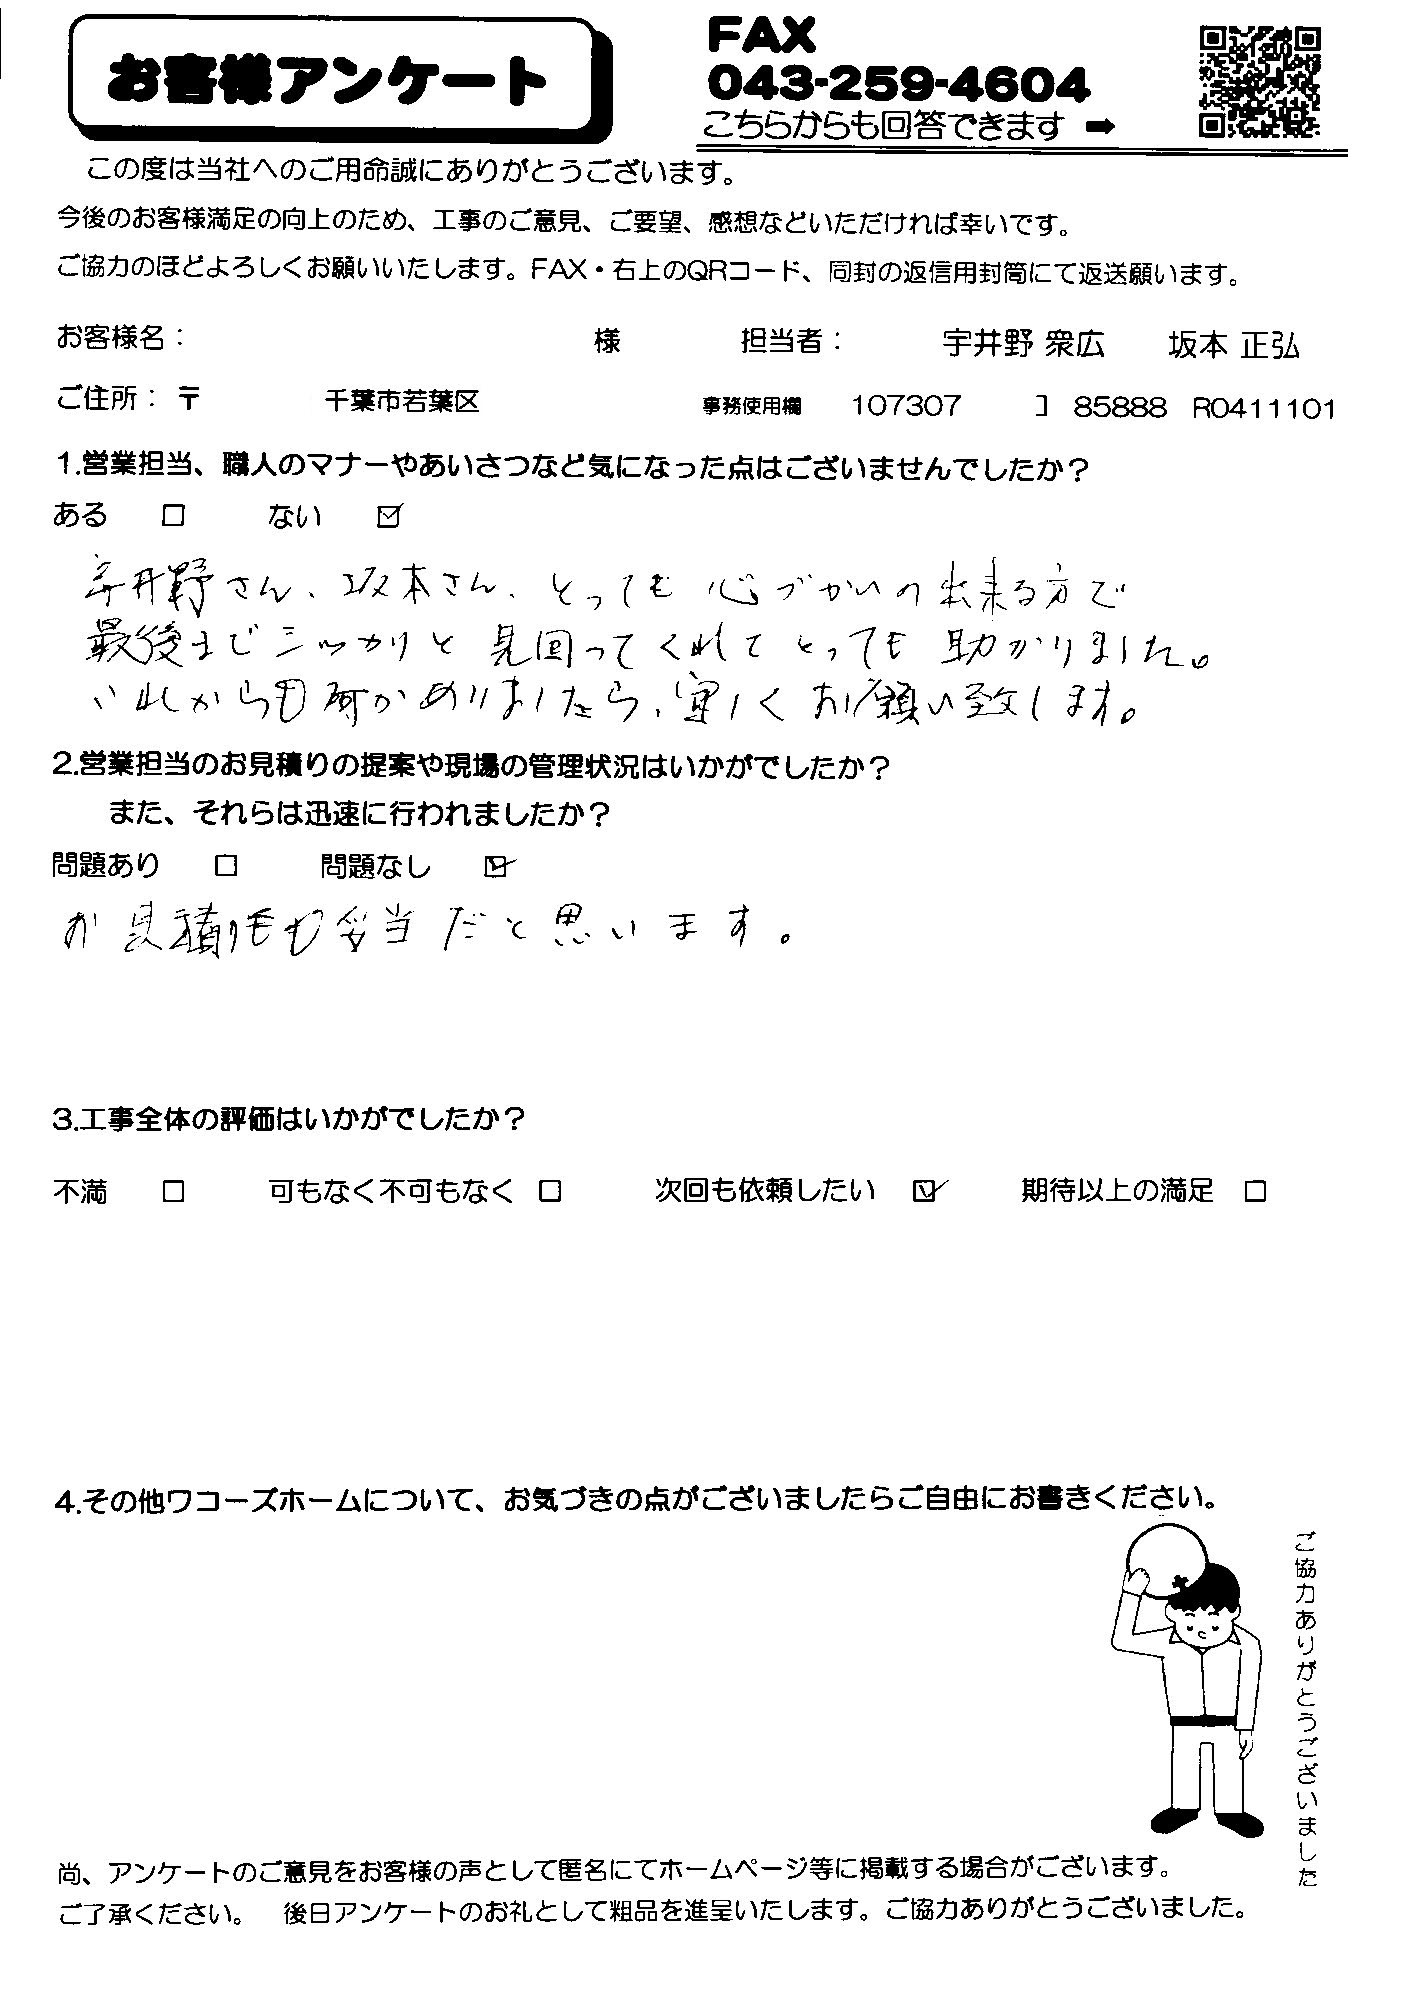 お客様アンケート
FAX
043-259-4604
こちらからも回答できます ➡
この度は当社へのご用命誠にありがとうございます。
今後のお客様満足の向上のため、工事のご意見、ご要望、感想などいただければ幸いです。
ご協力のほどよろしくお願いいたします。FAX・右上のQRコード、同封の返信用封筒にて返送願います。
お客様名： 様 担当者： 宇井野 衆広 坂本 正弘
ご住所： 〒 千葉市若葉区 事務使用欄 107307 ] 85888 R0411101
1.営業担当、職人のマナーやあいさつなど気になった点はございませんでしたか？
ある □ ない ☑
宇井野さん、坂本さん、とっても心づかいの出来る方で
最後までシッカリと見回ってくれてとっても助かりました。
これからも何かありましたら、宜しくお願い致します。
2.営業担当のお見積りの提案や現場の管理状況はいかがでしたか？
また、それらは迅速に行われましたか？
問題あり □ 問題なし ☑
お見積りも妥当だと思います。
3.工事全体の評価はいかがでしたか？
不満 □ 可もなく不可もなく □ 次回も依頼したい ☑ 期待以上の満足 □
4.その他ワコーズホームについて、お気づきの点がございましたらご自由にお書きください。
ご協力ありがとうございました
尚、アンケートのご意見をお客様の声として匿名にてホームページ等に掲載する場合がございます。
ご了承ください。 後日アンケートのお礼として粗品を進呈いたします。ご協力ありがとうございました。